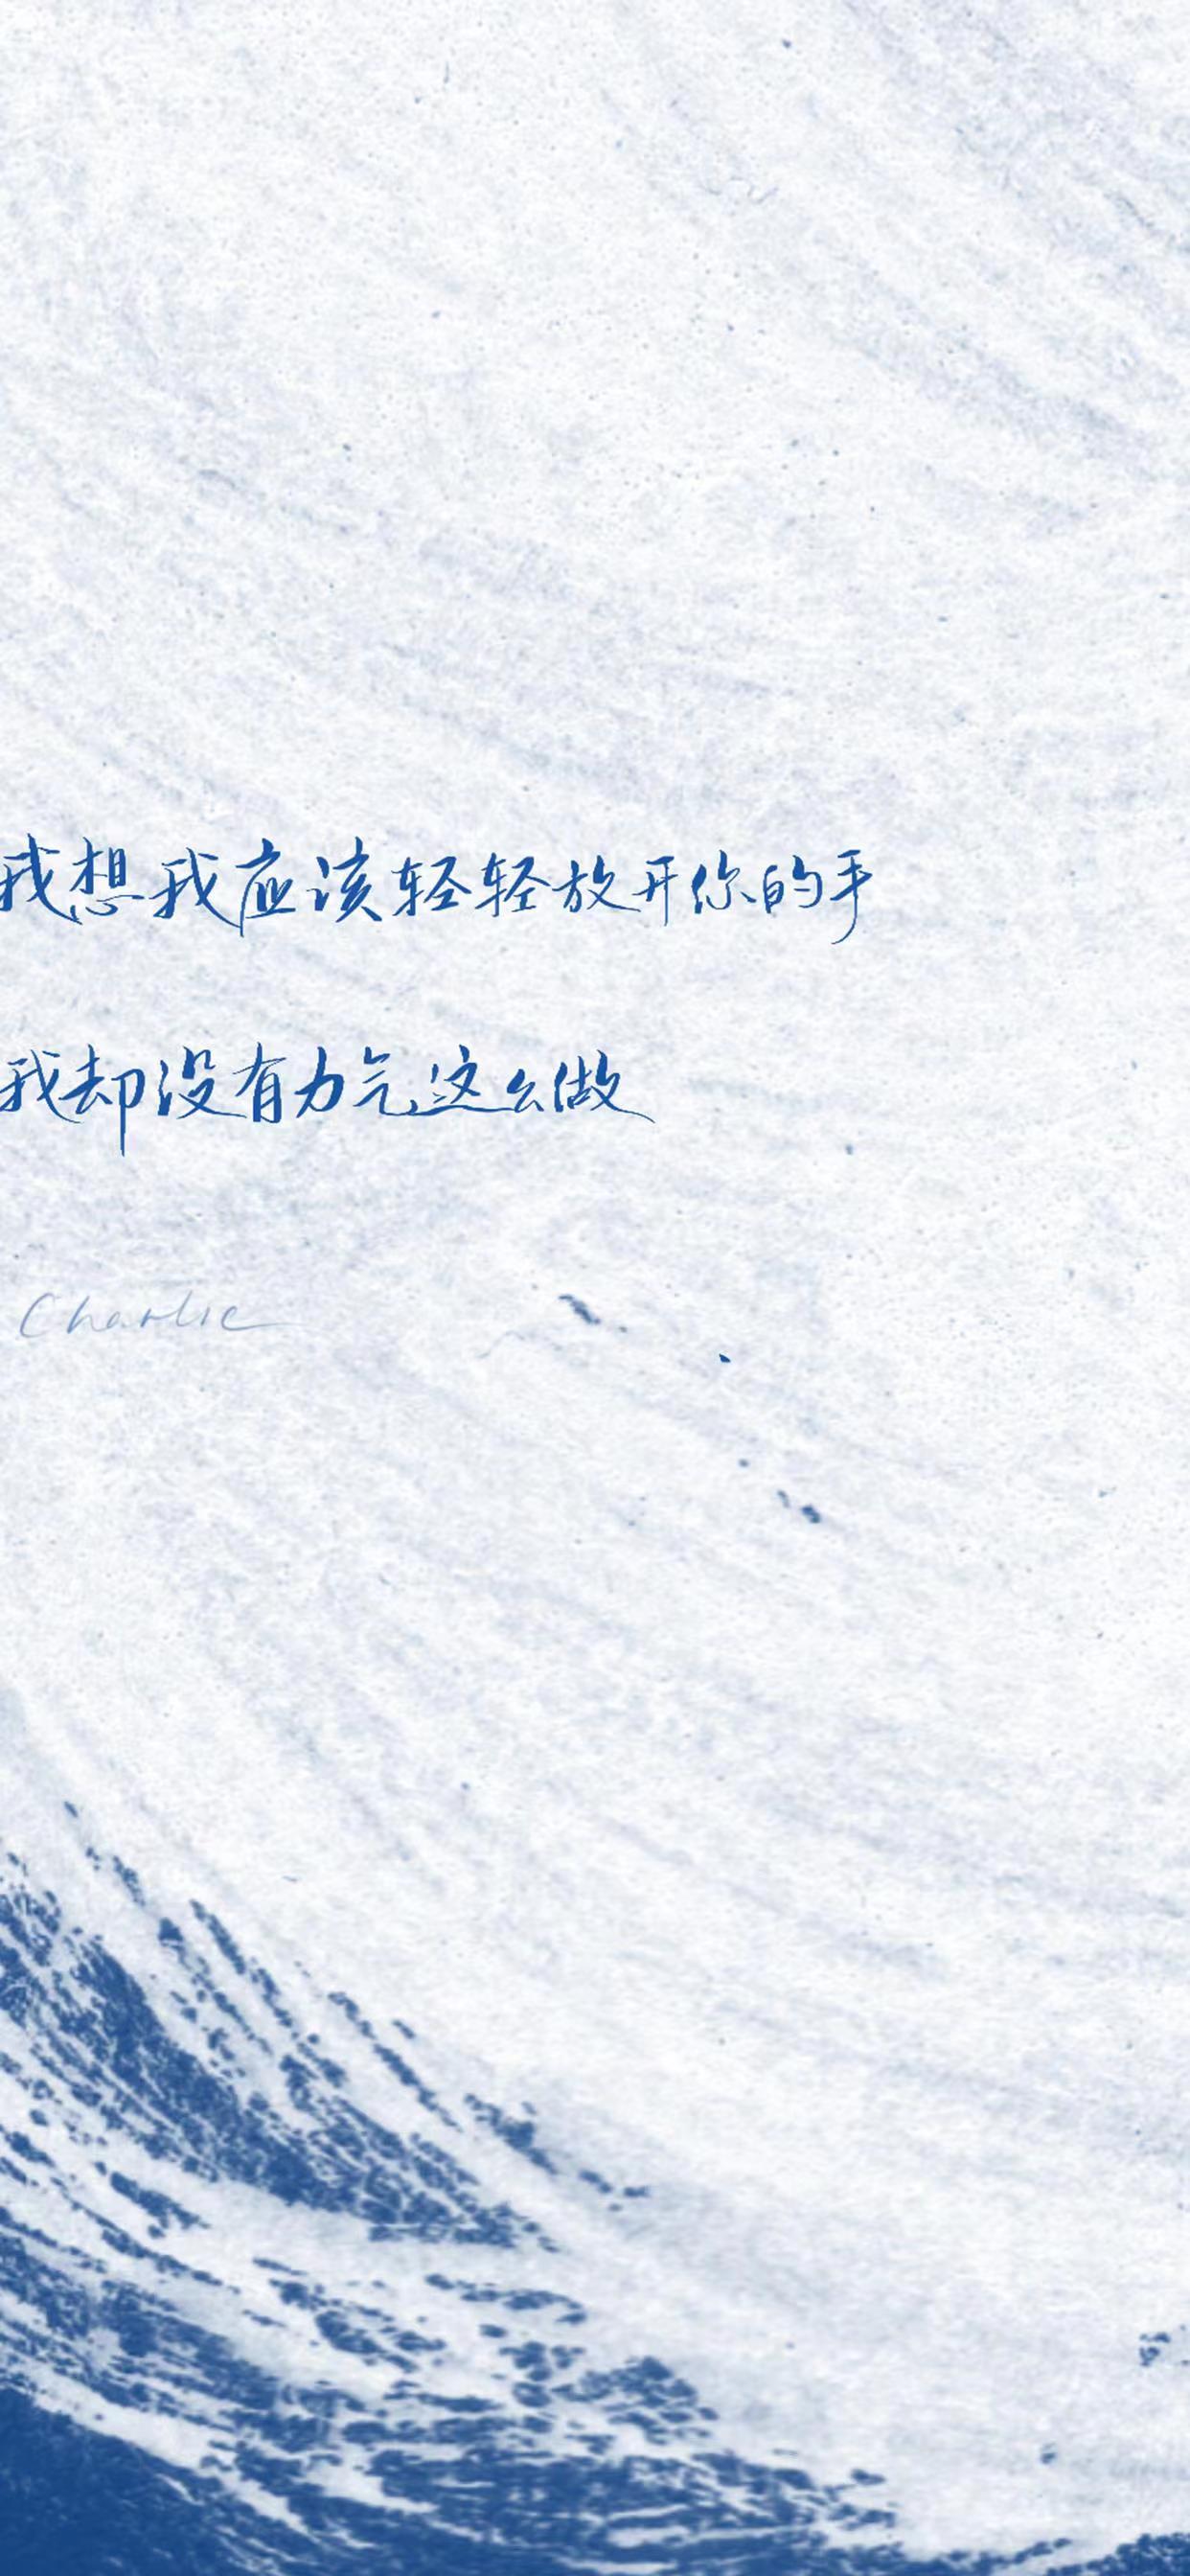 我想我应该轻轻放开你的手
我却没有力气这么做
Charlie